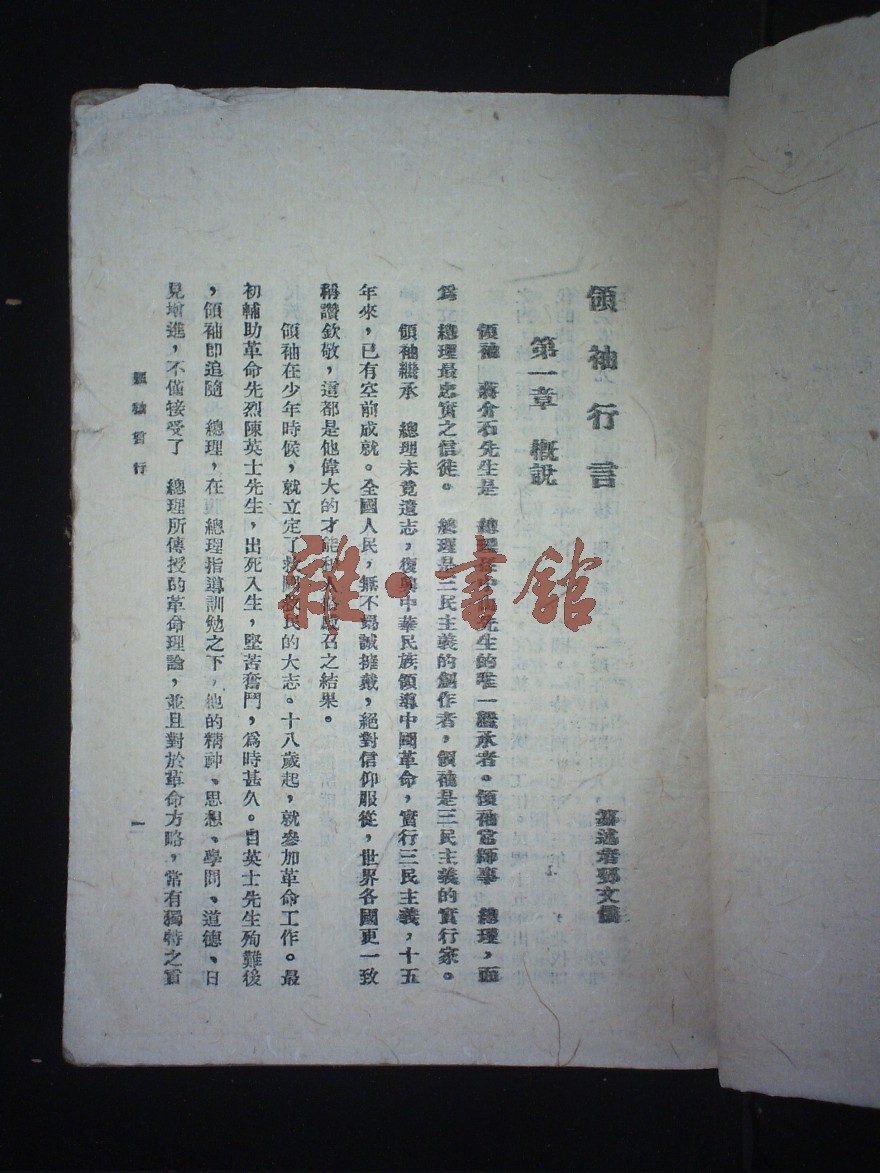 領袖行言
纂述者鄧文儀
第一章　概說
領袖　蔣介石先生是　總理孫中山先生的唯一繼承者。領袖當師事　總理，而
為　總理最忠實之信徒。　總理是三民主義的創作者，領袖是三民主義的實行家。
領袖繼承　總理未竟遺志，復興中華民族領導中國革命，實行三民主義，十五
年來，已有空前成就。全國人民，無不竭誠擁戴，絕對信仰服從，世界各國更一致
稱讚欽敬，這都是他偉大的才能和人格感召之結果。
領袖在少年時候，就立定了救國救民的大志。十八歲起，就參加革命工作。最
初輔助革命先烈陳英士先生，出死入生，堅苦奮鬥，為時甚久。自英士先生殉難後
，領袖即追隨　總理，在　總理指導訓勉之下，他的精神、思想、學問、道德、日
見增進，不僅接受了　總理所傳授的革命理論，並且對於革命方略，常有獨特之貢
領袖言行
一
雜·書館